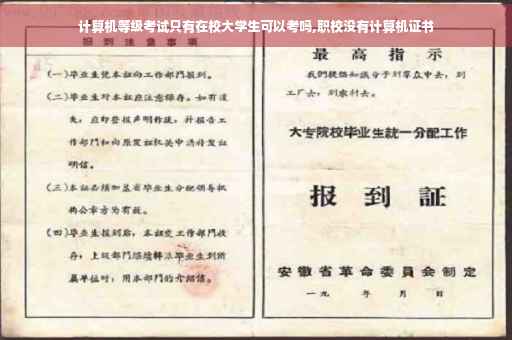 计算机等级考试只有在校大学生可以考吗,职校没有计算机证书
报到注意事项
(一)毕业生凭本证向工作部门报到。
(二)毕业生对本证应注意保存。如有遗
失,应即登报声明作废,并报告工
作部门和向原发证机关申请补发证
明信。
(三)本证必须加盖省毕业生分配领导机
构公章方为有效。
(四)毕业生报到后,本证交工作部门收
存;上级部门
毕业生到所
属单位时,用本部门的介绍信。
最高指示
我们提倡知识分子到群众中去,到
工厂去,到农村去。
大专院校毕业生统一分配工作
报到証
安徽省革命委員会制定
一九 年 月 日